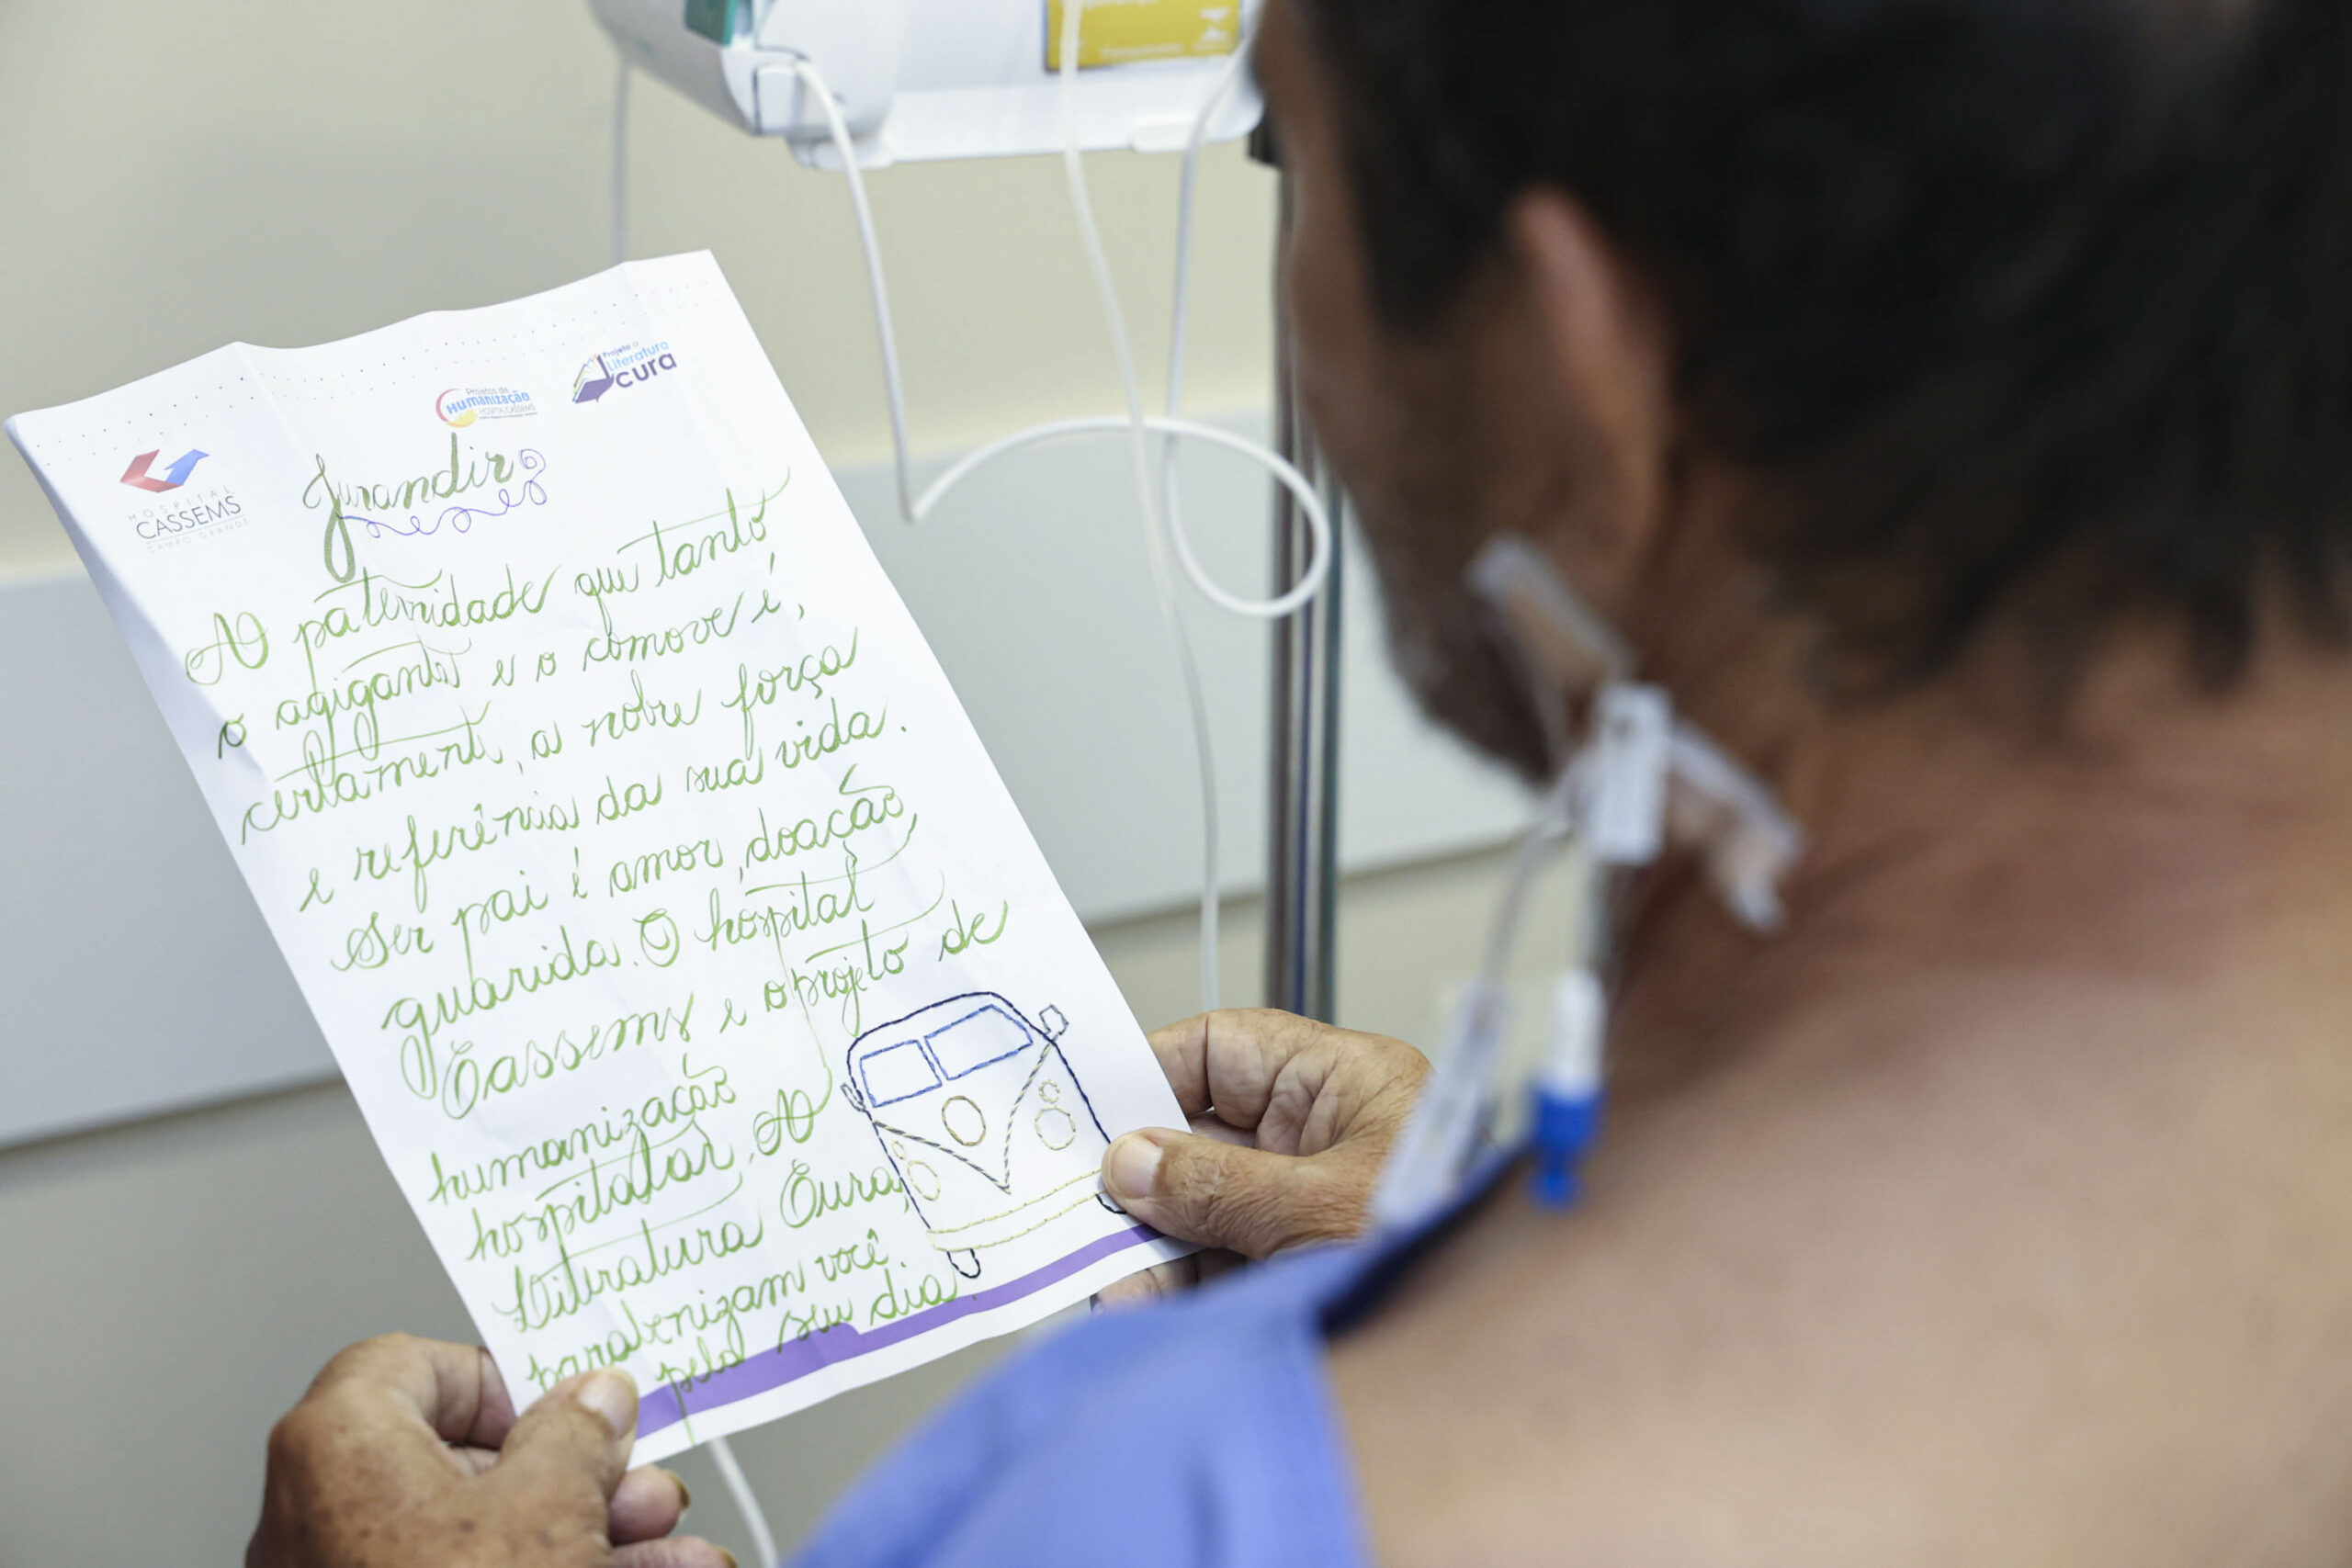 Projeto a
Literatura
cura
Projetos de
Humanização
HOSPITAL CASSEMS
HOSPITAL
CASSEMS
CAMPO GRANDE
Jurandir
A paternidade que tanto
o agiganta e o comove é,
certamente, a nobre força
e referência da sua vida.
Ser pai é amor, doação,
guarida. O hospital
Cassems e o projeto de
humanização
hospitalar, A
Literatura Cura,
parabenizam você
pelo seu dia